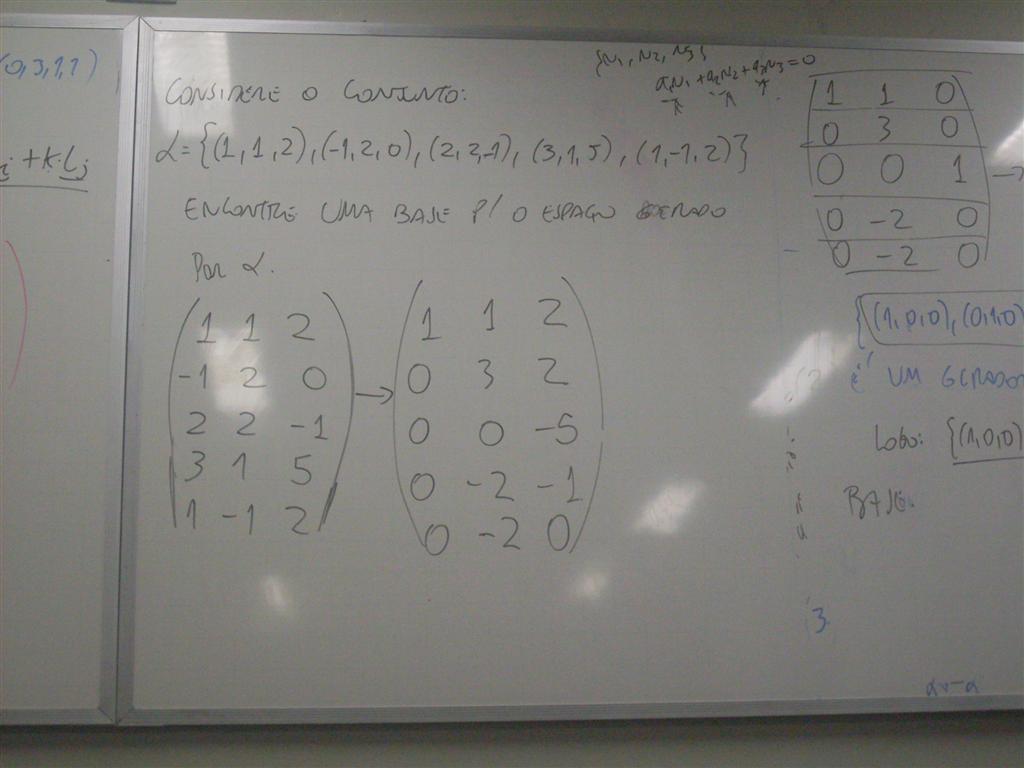 (0,3,1,1)
+ k·Lj
CONSIDERE O CONJUNTO:
α = {(1,1,2),(-1,2,0),(2,2,-1),(3,1,5),(1,-1,2)}
ENCONTRE UMA BASE P/ O ESPAÇO GERADO
POR α.
1 1 2
-1 2 0
2 2 -1
3 1 5
1 -1 2
→
1 1 2
0 3 2
0 0 -5
0 -2 -1
0 -2 0
{v1, v2, v3}
a1v1 + a2v2 + a3v3 = 0
1 1 0
0 3 0
0 0 1 →
0 -2 0
0 -2 0
{(1,0,0),(0,1,0)
é UM GERADO
LOGO: {(1,0,0)
BASE.
3